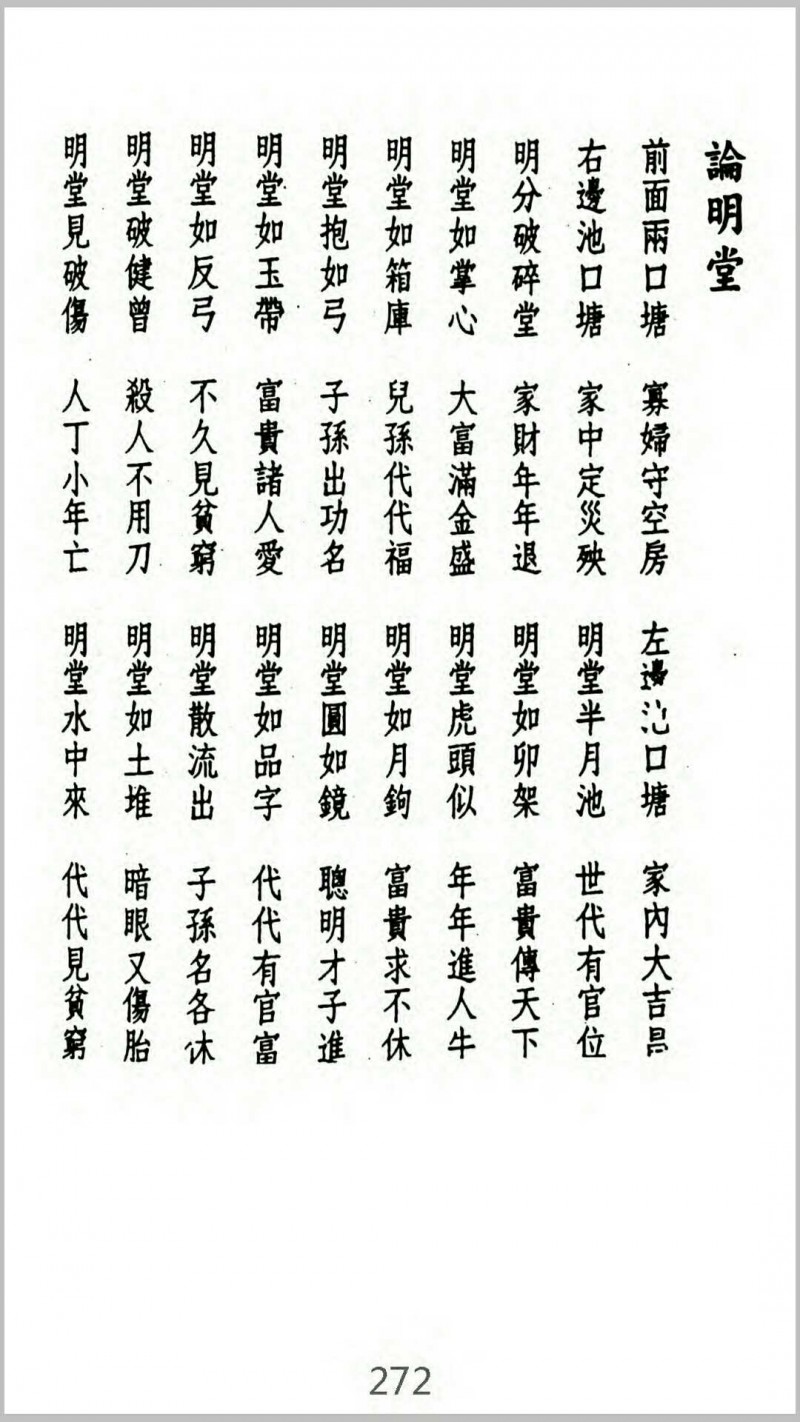 論明堂
前面兩口塘 寡婦守空房 左邊口塘 家內大吉
右邊池口塘 家中定災殃 明堂半月池 世代有官位
明分破碎堂 家財年年退 明堂如卯架 富貴傳天下
明堂如掌心 大富滿金盛 明堂虎頭似 年年進人牛
明堂如箱庫 兒孫代代福 明堂如月鉤 富貴求不休
明堂抱如弓 子孫出功名 明堂圓如鏡 聰明才子進
明堂如玉帶 富貴諸人愛 明堂如品字 代代有官富
明堂如反弓 不久見貧窮 明堂散流出 子孫名各休
明堂破健曾 殺人不用刀 明堂如土堆 暗眼又傷胎
明堂見破傷 人丁小年亡 明堂水中來 代代見貧窮
272